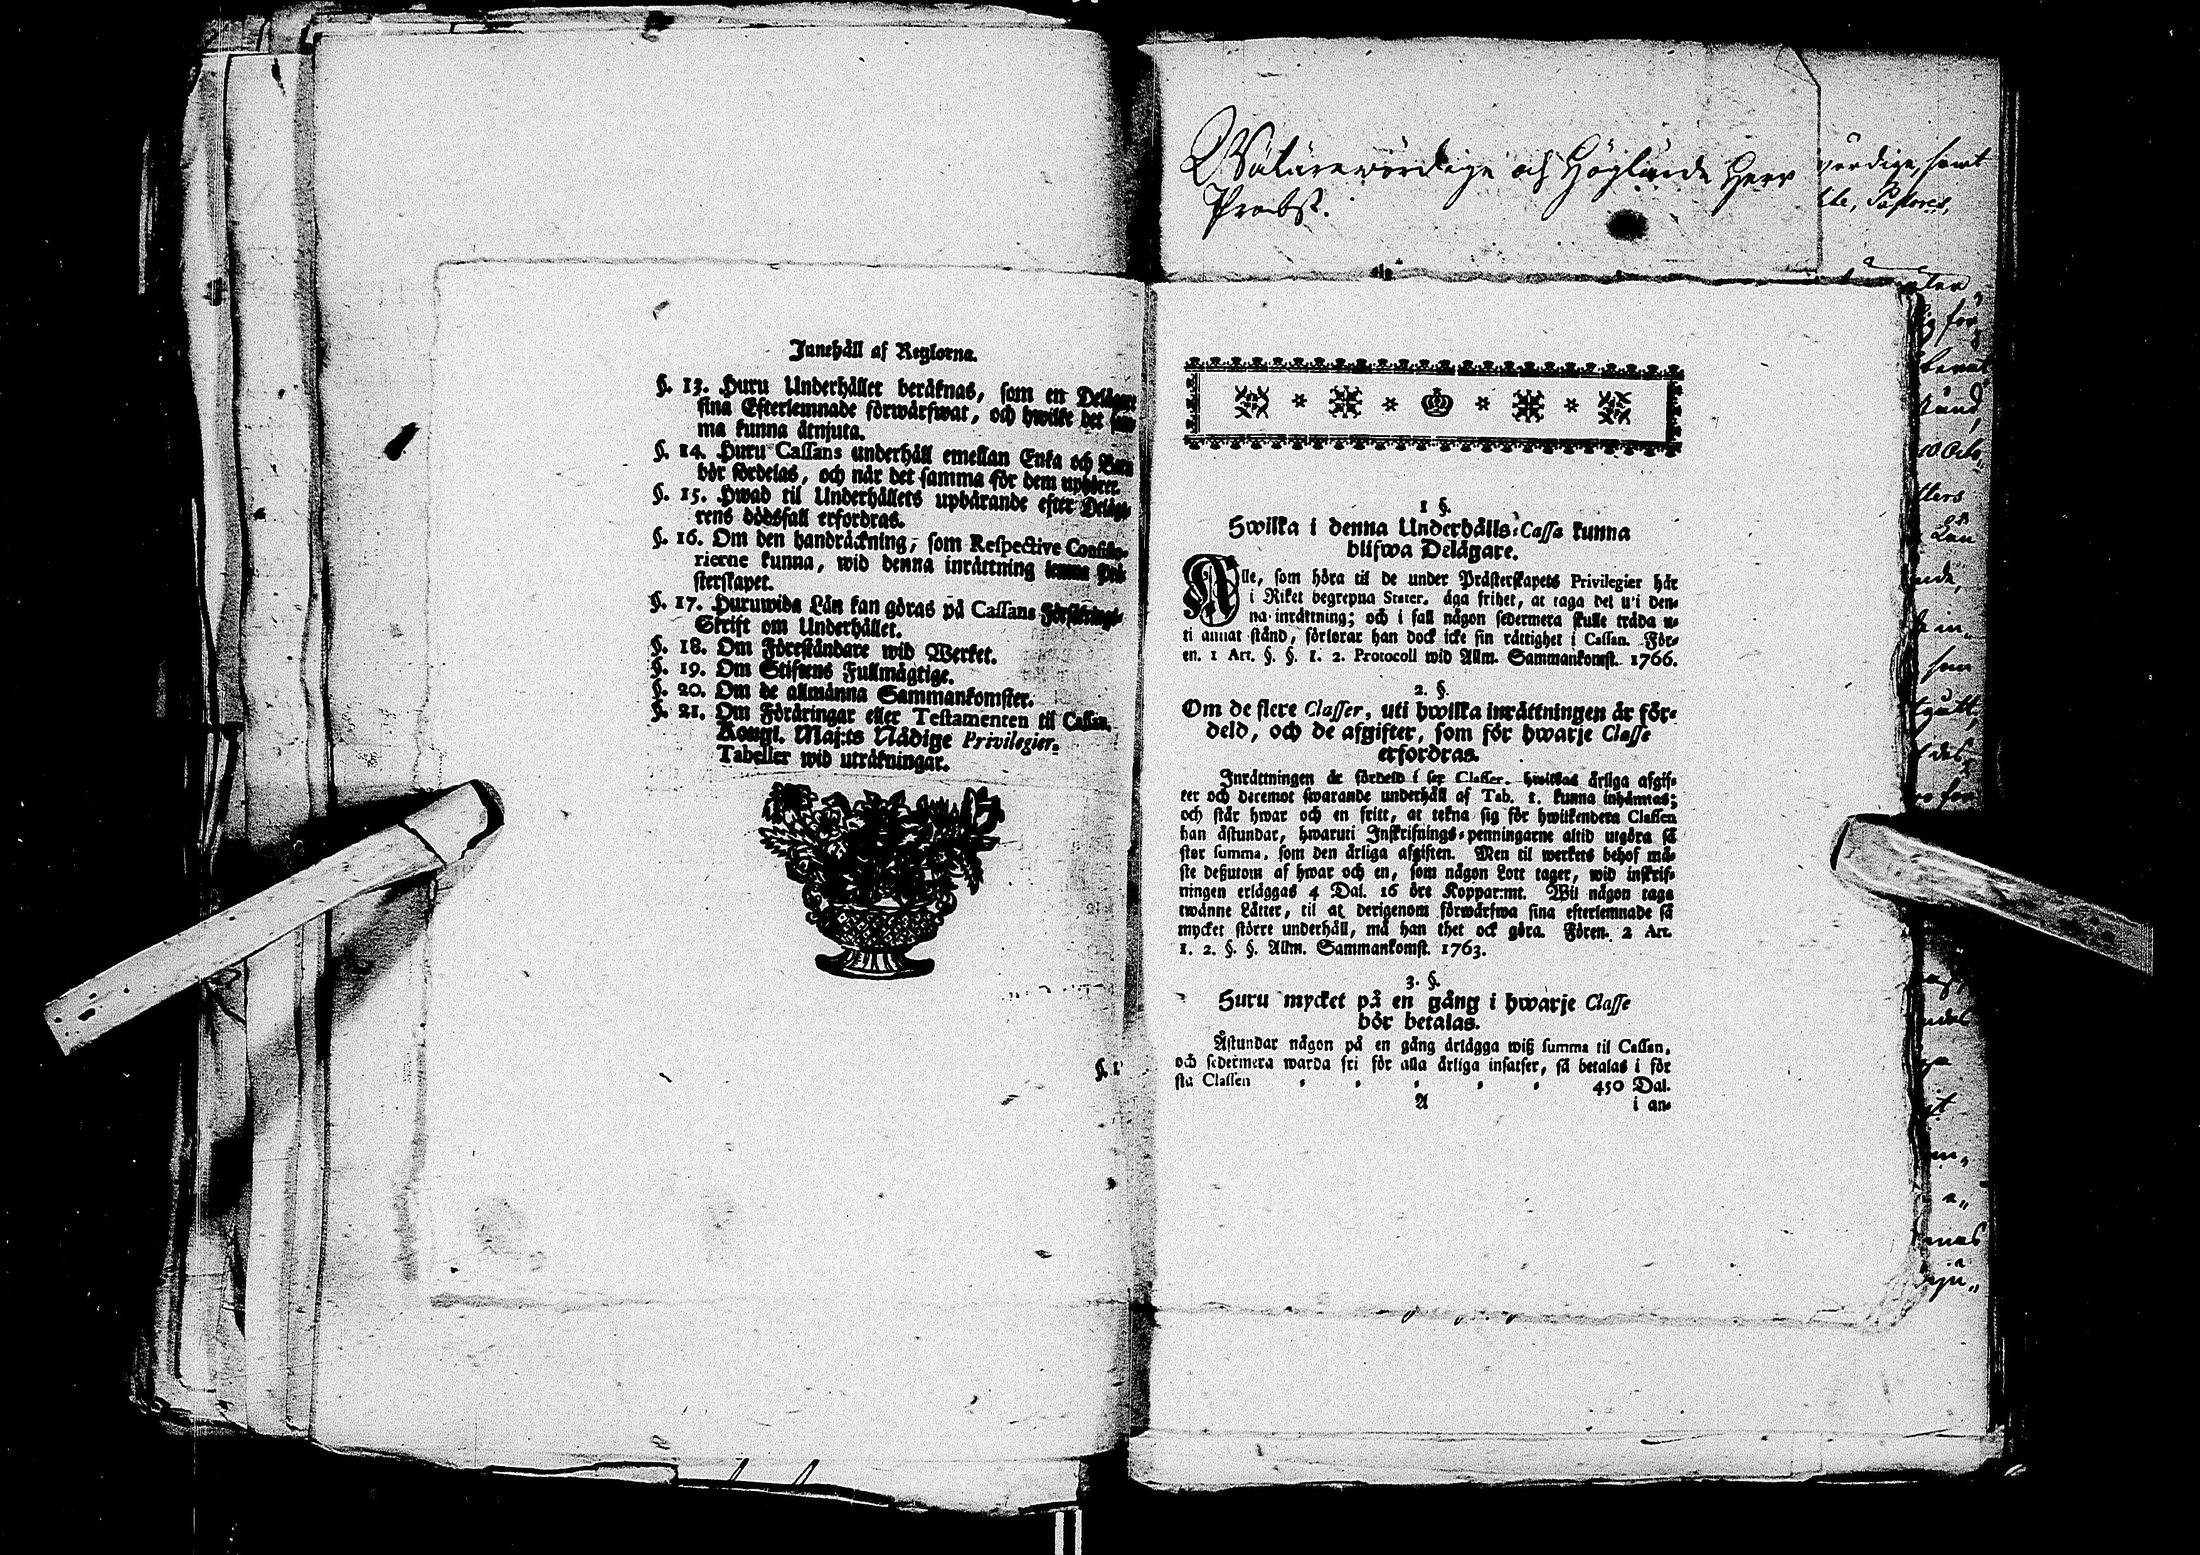 Innehåll af Reglorna.
§. 13. Huru Underhållet beräknas, som en Delägare
sina Efterlemnade förwärfwat, och hwilke det sam-
ma kunna åtnjuta.
§. 14. Huru Cassans underhåll emellan Enka och Barn
bör fördelas, och när det samma för dem uphörer.
§. 15. Hwad til Underhållets upbärande efter Deläga-
rens dödsfall erfordras.
§. 16. Om den handräckning, som Respective Consisto-
rierne kunna, wid denna inrättning lemna Prä-
sterskapet.
§. 17. Huruwida Lån kan göras på Cassans Försäkrings-
Skrift om Underhållet.
§. 18. Om Föreståndare wid Werket.
§. 19. Om Stiftens Fullmägtige.
§. 20. Om de allmänna Sammankomster.
§. 21. Om Föräringar eller Testamenten til Cassan.
Kongl. Maj:ts Nådige Privilegier.
Tabeller wid uträkningar.
§. 1
Wälärewördige och Höglärde Herr
Probst.
wördige, samt
Pastores,
1 §.
Hwilka i denna Underhålls-Cassa kunna
blifwa Delägare.
Alle, som höra til de under Prästerskapets Privilegier här
i Riket begrepna Stater, äga frihet, at taga del uti den-
na inrättning; och i fall någon sedermera skulle träda u-
ti annat stånd, förlorar han dock icke sin rättighet i Cassan. För-
en. 1 Art. §. §. 1. 2. Protocoll wid Allm. Sammankomst. 1766.
2. §.
Om de flere Classer, uti hwilka inrättningen är för-
deld, och de afgifter, som för hwarje Classe
erfordras.
Inrättningen är fördeld i sex Classer, hwilkas årliga afgif-
ter och deremot swarande underhåll af Tab. 1. kunna inhämtas;
och står hwar och en fritt, at tekna sig för hwilkendera Classen
han åstundar, hwaruti Inskrifnings-penningarne altid utgöra så
stor summa, som den årliga afgiften. Men til werkets behof må-
ste deßutom af hwar och en, som någon Lott tager, wid inskrif-
ningen erläggas 4 Dal. 16 öre Koppar:mt. Wil någon taga
twänne Lotter, til at derigenom förwärfwa sina efterlemnade så
mycket större underhåll, må han thet ock göra. Fören. 2 Art.
1. 2. §. §. Allm. Sammankomst. 1763.
3. §.
Huru mycket på en gång i hwarje Classe
bör betalas.
Åstundar någon på en gång ärlägga wiß summa til Cassan,
och sedermera warda fri för alla årliga insatser, så betalas i för
sta Classen - - - - - 450 Dal.
A i an-